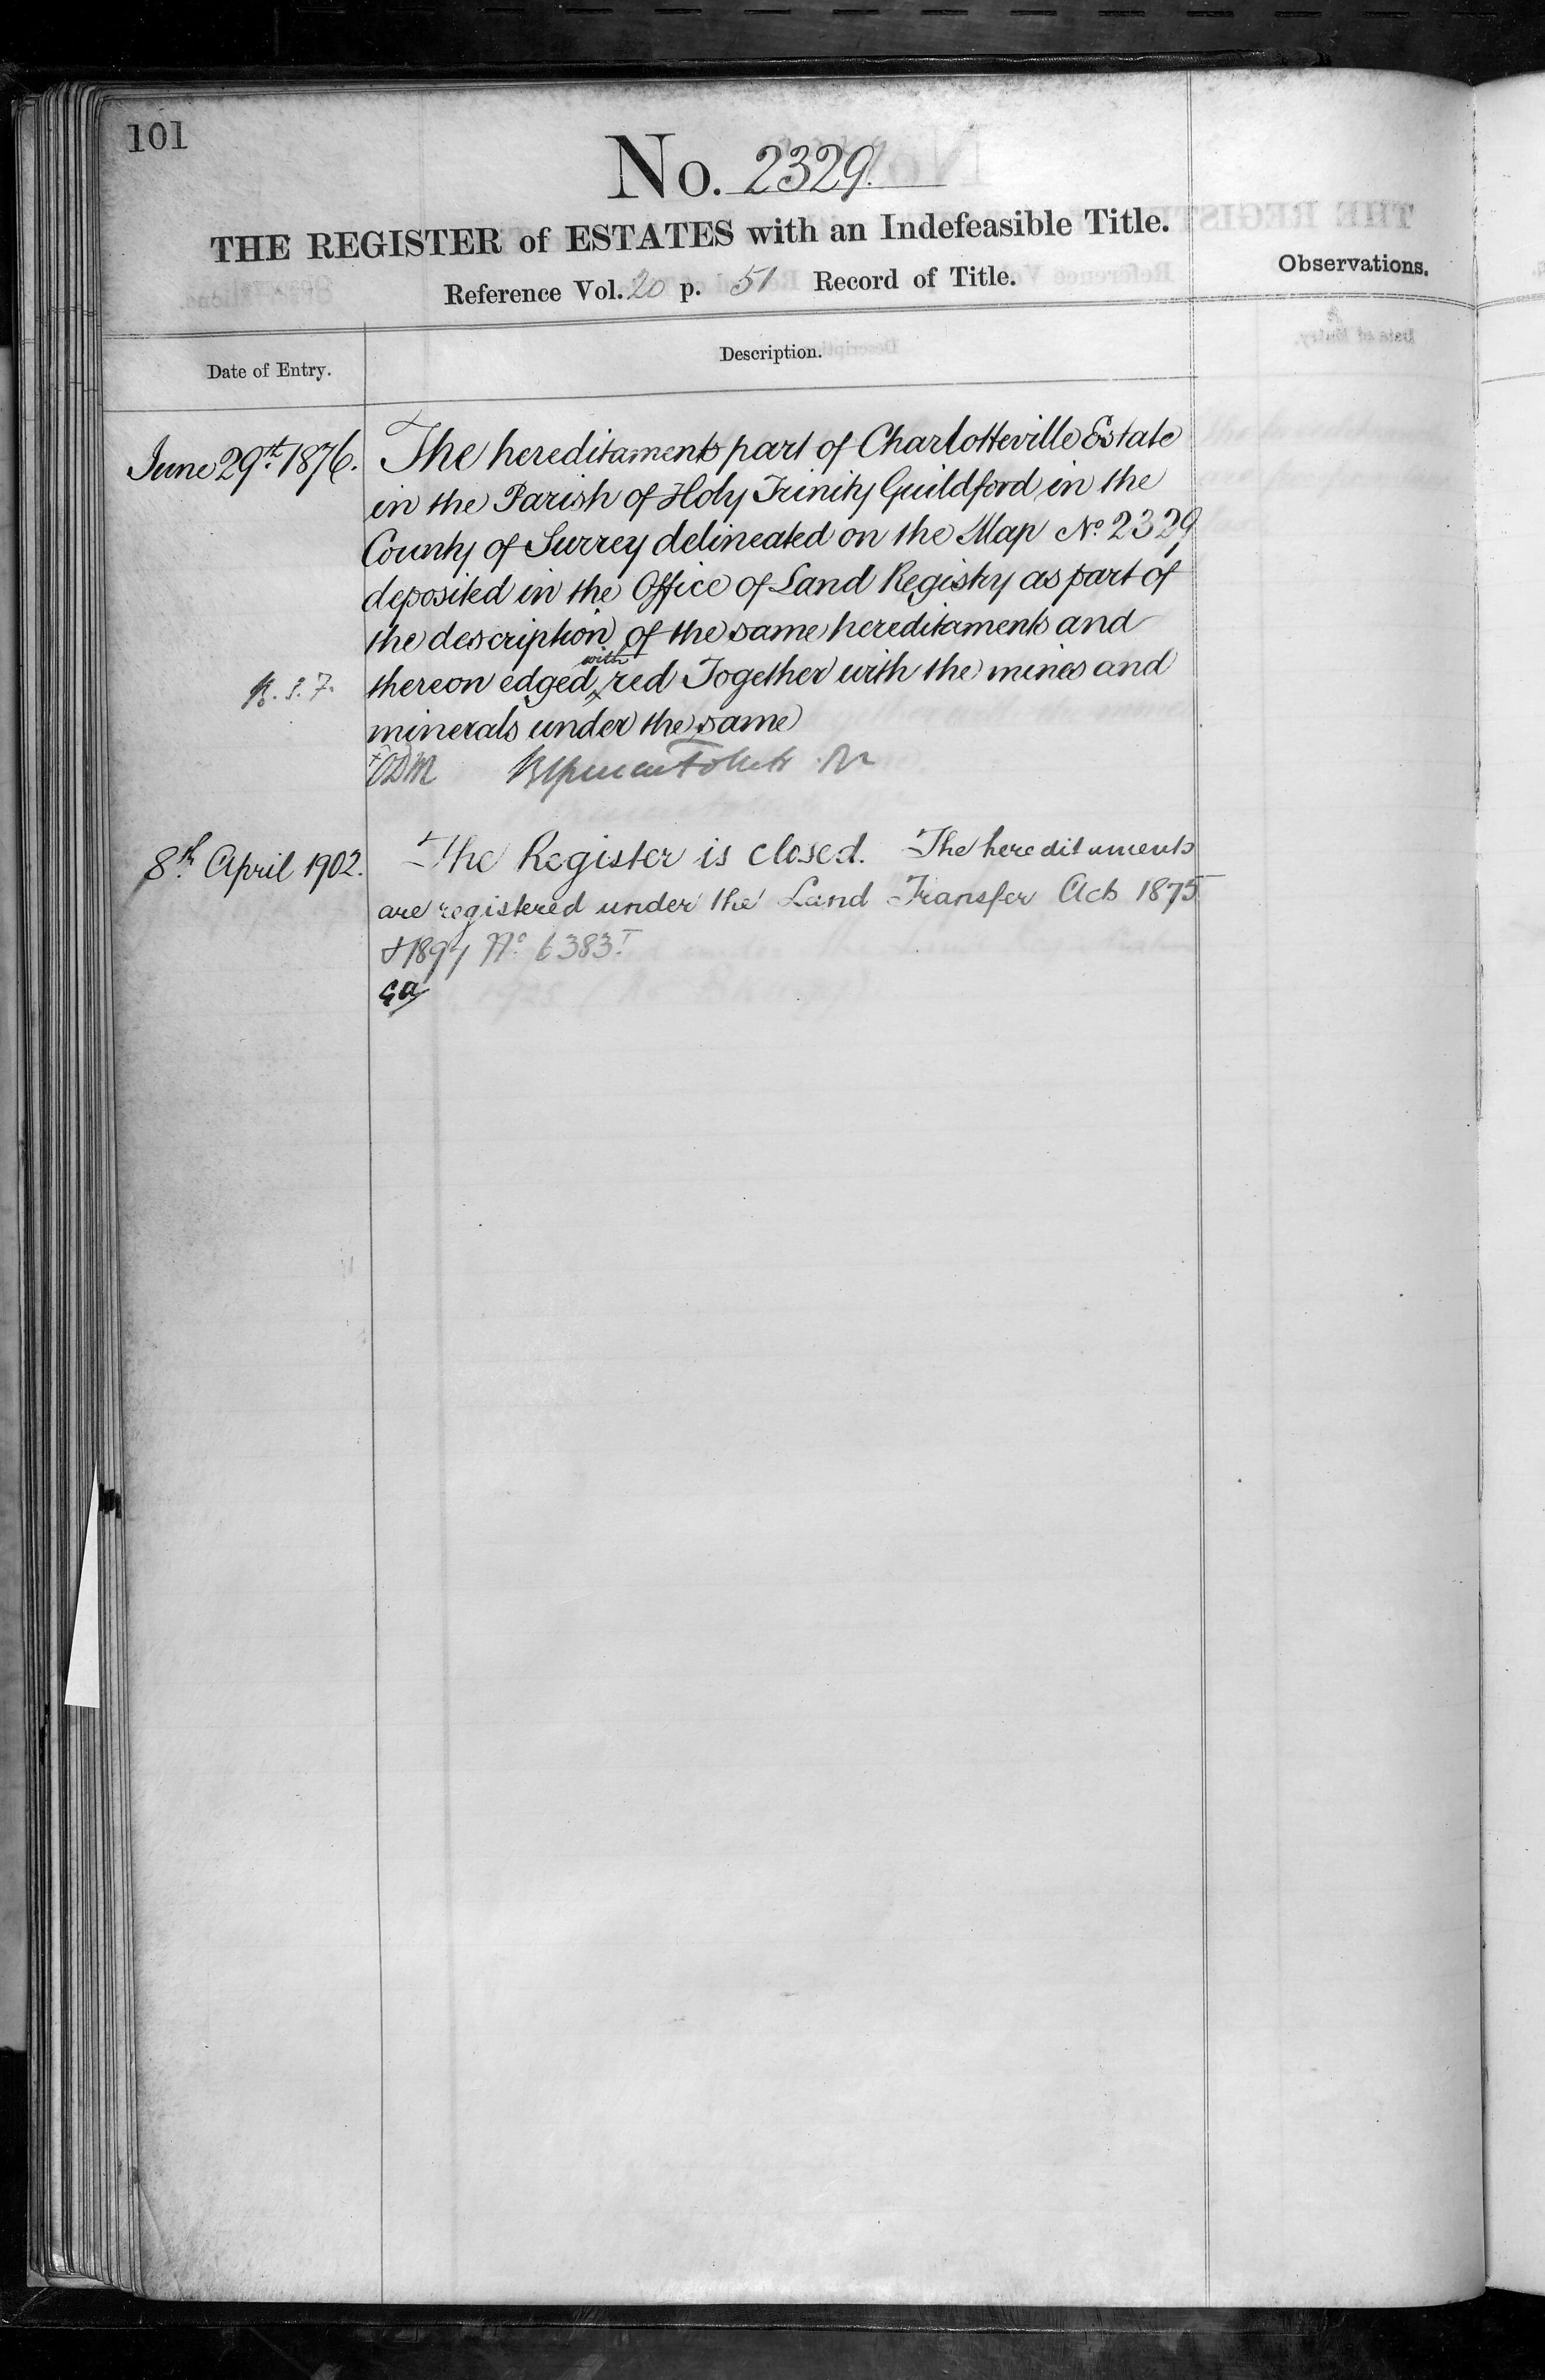 101
No. 2329.
THE REGISTER of ESTATES with an Indefeasible Title.
Reference Vol. 20 p. 51 Record of Title.
Observations.
Date of Entry.
Description.
June 29th. 1876.
The hereditaments part of Charlotteville Estate
in the Parish of Holy Trinity Guildford in the
County of Surrey delineated on the Map No. 2329
deposited in the Office of Land Registry as part of
the description of the same hereditaments and
with
thereon edged x red Together with the mines and
R. S. F.
minerals under the same
8th April 1902.
The Register is closed. The hereditaments
are registered under the Land Transfer Acts 1875
& 1897 No. 6383